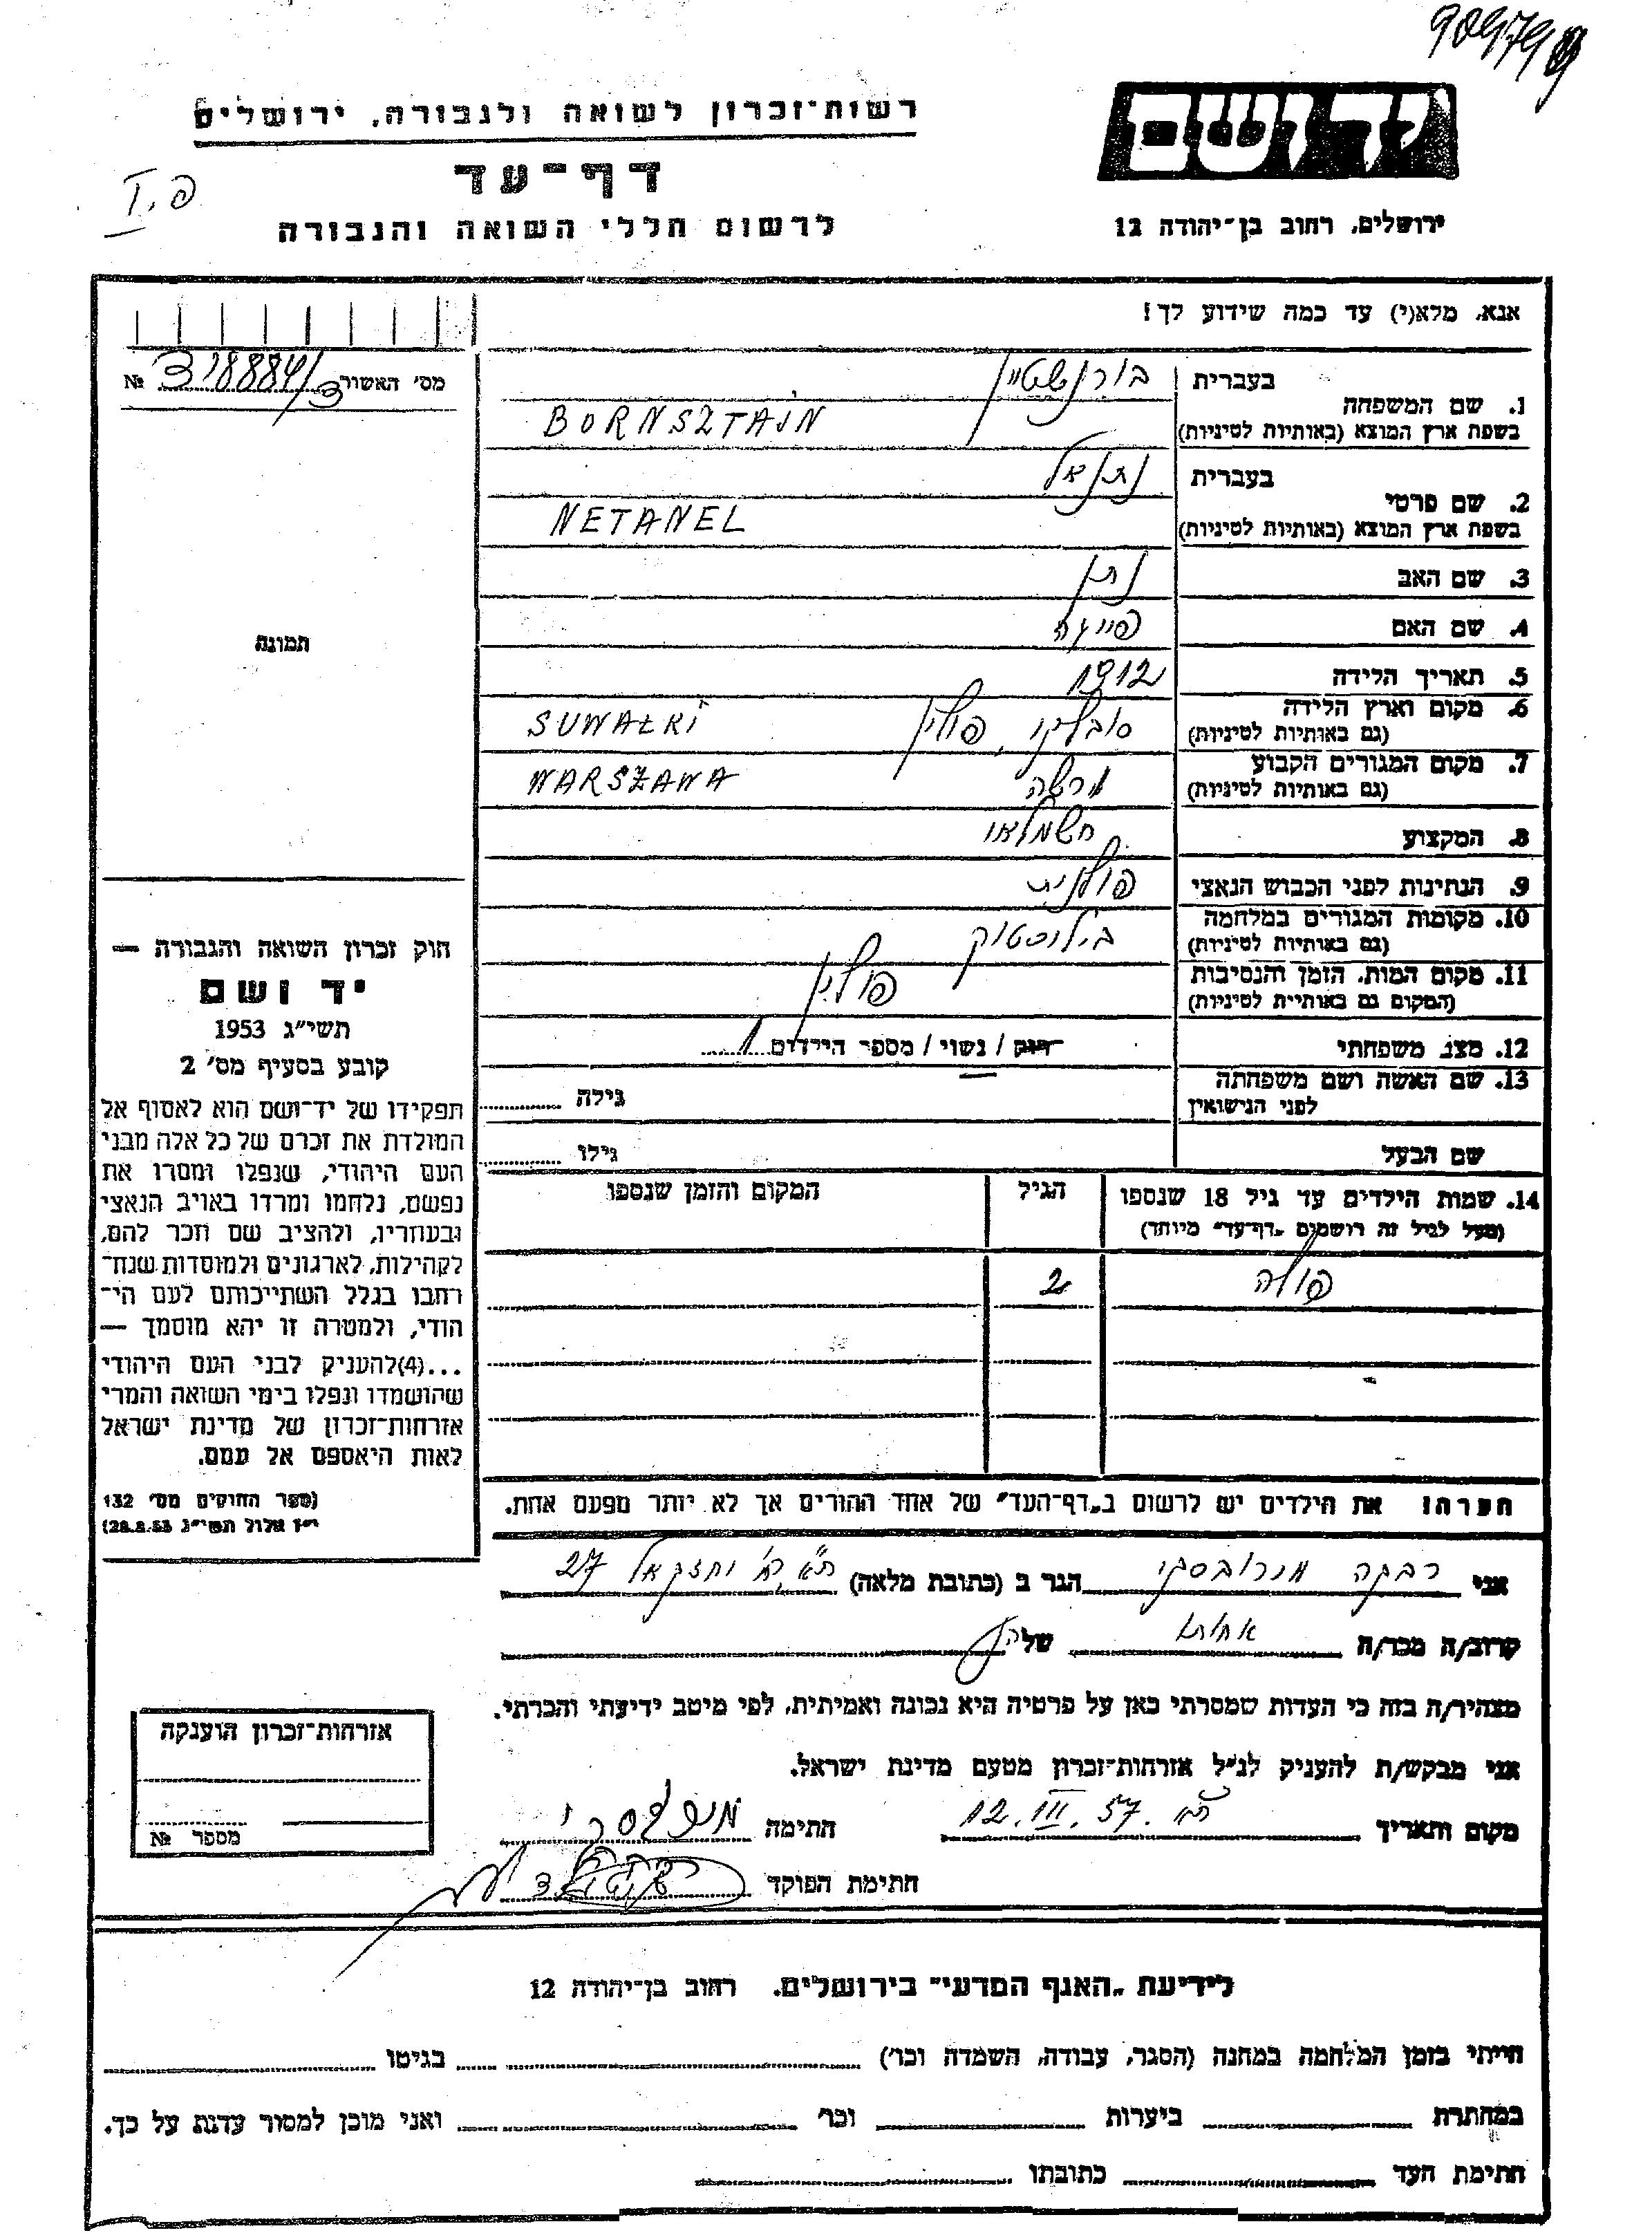 רשות־זכרון לשואה ולגבורה, ירושלים
דף־עד
לרשום חללי השואה והגבורה
פ.I
יד ושם
ירושלים, רחוב בן־יהודה 12
אנא, מלא(י) עד כמה שידוע לך!
מס׳ האשור № 318884/3
תמונה
1. שם המשפחה בעברית בורנשטיין
בשפת ארץ המוצא (באותיות לטיניות) BORNSZTAJN
2. שם פרטי בעברית נתנאל
בשפת ארץ המוצא (באותיות לטיניות) NETANEL
3. שם האב נתן
4. שם האם פייגה
5. תאריך הלידה 1912
6. מקום וארץ הלידה סובלקי, פולין SUWAŁKI
(גם באותיות לטיניות)
7. מקום המגורים הקבוע ורשה WARSZAWA
(גם באותיות לטיניות)
8. המקצוע חשמלאי
9. הנתינות לפני הכבוש הנאצי פולנית
10. מקומות המגורים במלחמה ביליסטוק
(גם באותיות לטיניות)
11. מקום המות, הזמן והנסיבות פולין
(המקום גם באותיות לטיניות)
12. מצב משפחתי רוק / נשוי / מספר הילדים 1
13. שם האשה ושם משפחתה גילה
לפני הנישואין
שם הבעל גילו
14. שמות הילדים עד גיל 18 שנספו הגיל המקום והזמן שנספו
(מעל לגיל זה רושמים „דף־עד״ מיוחד)
פולה 2
הערה! את הילדים יש לרשום ב„דף־העד״ של אחד ההורים אך לא יותר מפעם אחת.
חוק זכרון השואה והגבורה —
יד ושם
תשי״ג 1953
קובע בסעיף מס׳ 2
תפקידו של יד־ושם הוא לאסוף אל
המולדת את זכרם של כל אלה מבני
העם היהודי, שנפלו ומסרו את
נפשם, נלחמו ומרדו באויב הנאצי
ובעוזריו, ולהציב שם וזכר להם,
לקהילות, לארגונים ולמוסדות שנח־
רבו בגלל השתייכותם לעם הי־
הודי, ולמטרה זו יהא מוסמך —
...(4)להעניק לבני העם היהודי
שהושמדו ונפלו בימי השואה והמרי
אזרחות־זכרון של מדינת ישראל
לאות היאספם אל עמם.
(ספר החוקים מס׳ 132
י״ז אלול תשי״ג 28.8.53)
אני רבקה הגר ב (כתובת מלאה) ת״א יחזקאל 27
קרוב/ה מכר/ה אחות של
מצהיר/ה בזה כי העדות שמסרתי כאן על פרטיה היא נכונה ואמיתית, לפי מיטב ידיעתי והכרתי.
אני מבקש/ת להעניק לנ״ל אזרחות־זכרון מטעם מדינת ישראל.
מקום ותאריך ת״א 12.III.57. חתימה
חתימת הפוקד
אזרחות־זכרון הוענקה
מספר №
לידיעת „האגף המדעי״ בירושלים. רחוב בן־יהודה 12
הייתי בזמן המלחמה במחנה (הסגר, עבודה, השמדה וכו׳) בגיטו
במחתרת ביערות וכו׳ ואני מוכן למסור עדות על כך.
חתימת העד כתובתו